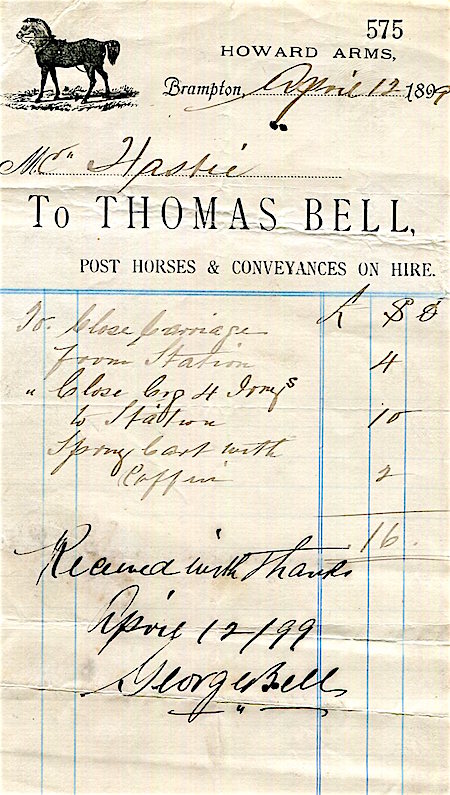 575
HOWARD ARMS,
Brampton, April 12 1899
Mr Hastie
To THOMAS BELL,
POST HORSES & CONVEYANCES ON HIRE.
£ S D
To Close Carriage
from Station 4
" Close Crg 4
to Station 10
Spring Cart with
Coffin 2
16
Received with Thanks
April 12/99
George Bell